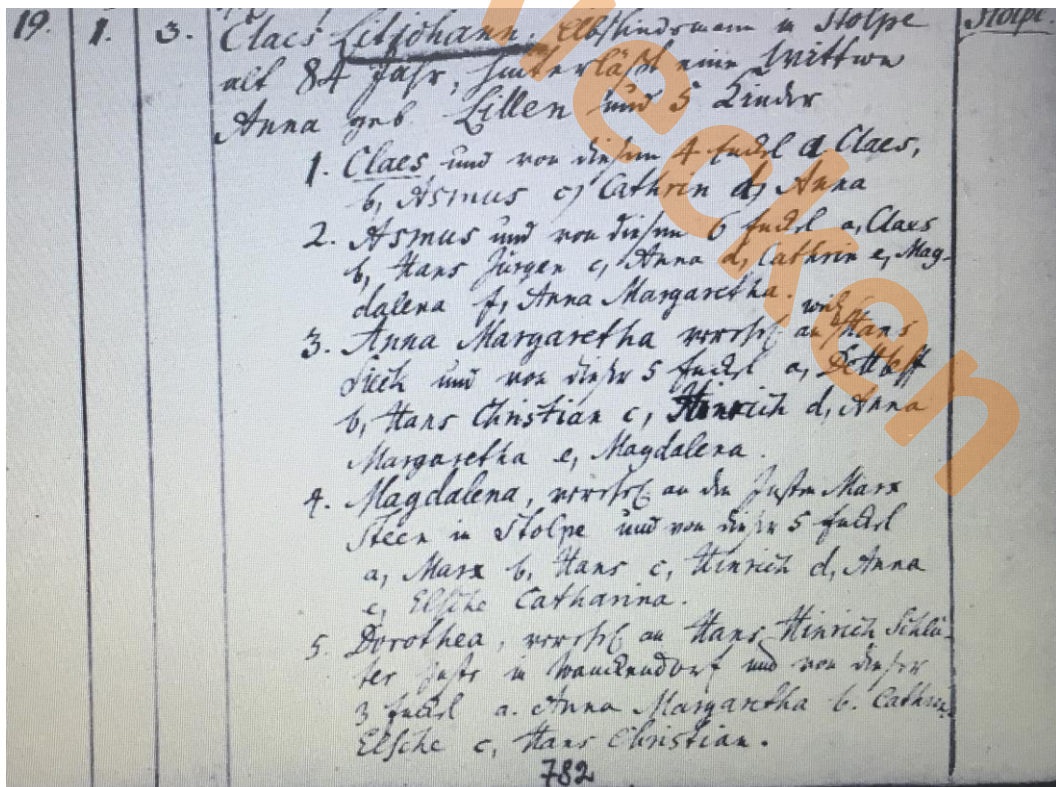 19. 1. 3. Claes Litjohann, in Stolpe Stolpe.
alt 84 Jahr, hinterläßt eine Wittwe
Anna geb und 5 Kinder
1. Claes und von diesem 4 Enckel a Claes,
b, Asmus c) Cathrin d, Anna
2. Asmus und von diesem 6 Enckel a, Claes
b, Hans Jürgen c, Anna d, Cathrin e, Mag-
dalena f, Anna Margaretha.
3. Anna Margaretha an Hans
und von dieser 5 Enckel a, Dettleff
b, Hans Christian c, Hinrich d, Anna
Margaretha e, Magdalena.
4. Magdalena, an den Marx
Steen in Stolpe und von dieser 5 Enckel
a, Marx b, Hans c, Hinrich d, Anna
e, Elsche Catharina.
5. Dorothea, an Hans Hinrich Schlü-
ter in Wanckendorf und von dieser
3 Enckel a. Anna Margaretha b. Cathrin
Elsche c, Hans Christian.
782